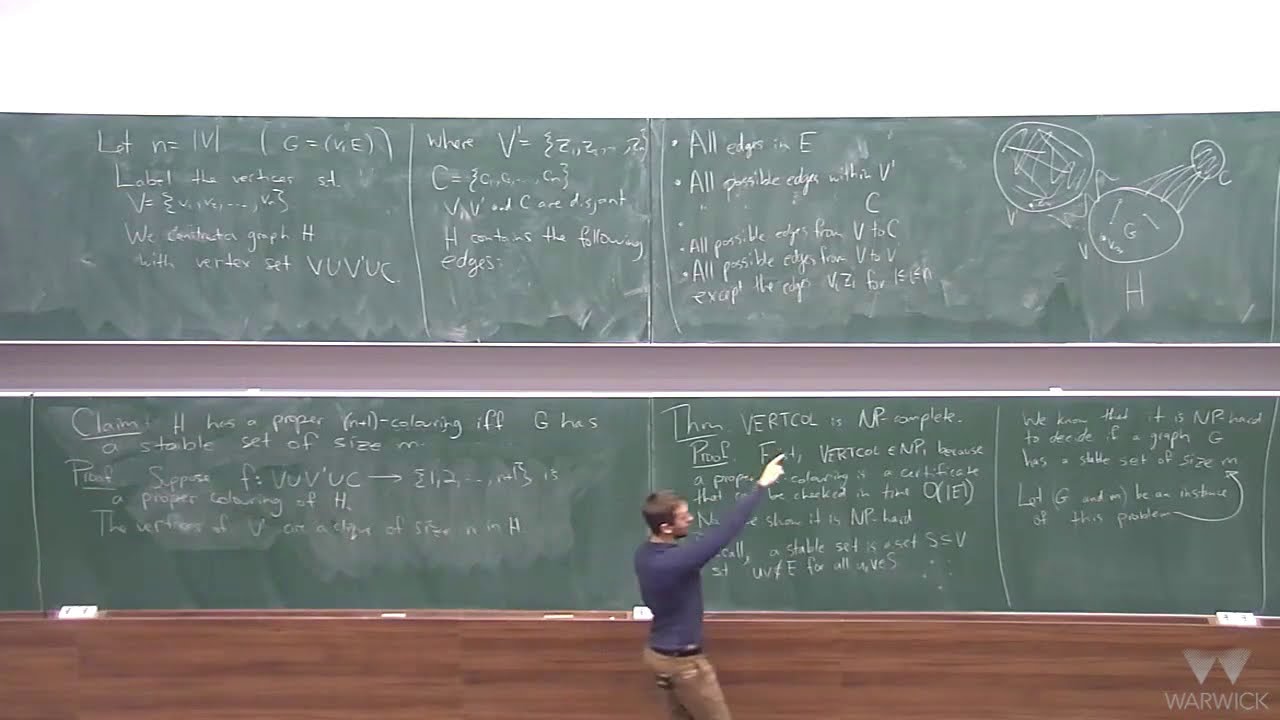 Let n = |V| (G = (V, E))
Label the vertices s.t.
V = {v₁, v₂, ..., vₙ}
We a graph H
with vertex set V∪V'∪C
where V' = {z₁, z₂, ..., zₙ}
C = {c₁, c₂, ..., cₙ}
V, V' and C are disjoint
H contains the following
edges:
• All edges in E
• All possible edges within V'
" " " C
• All possible edges from V to C
• All possible edges from V to V'
except the edges vᵢzᵢ for 1≤i≤n
V'
C
G
V
H
Claim: H has a proper (n+1)-colouring iff G has
a stable set of size m.
Proof. Suppose f: V∪V'∪C → {1,2,...,n+1} is
a proper colouring of H.
The vertices of V' are a clique of size n in H
Thm. VERTCOL is NP-complete.
Proof. First, VERTCOL ∈ NP, because
a proper colouring is a certificate
that can be checked in time O(|E|)
we show it is NP-hard
a stable set is a set S⊆V
st uv∉E for all u,v∈S
We know that it is NP-hard
to decide if a graph G
has a stable set of size m
Let (G and m) be an instance
of this problem
WARWICK